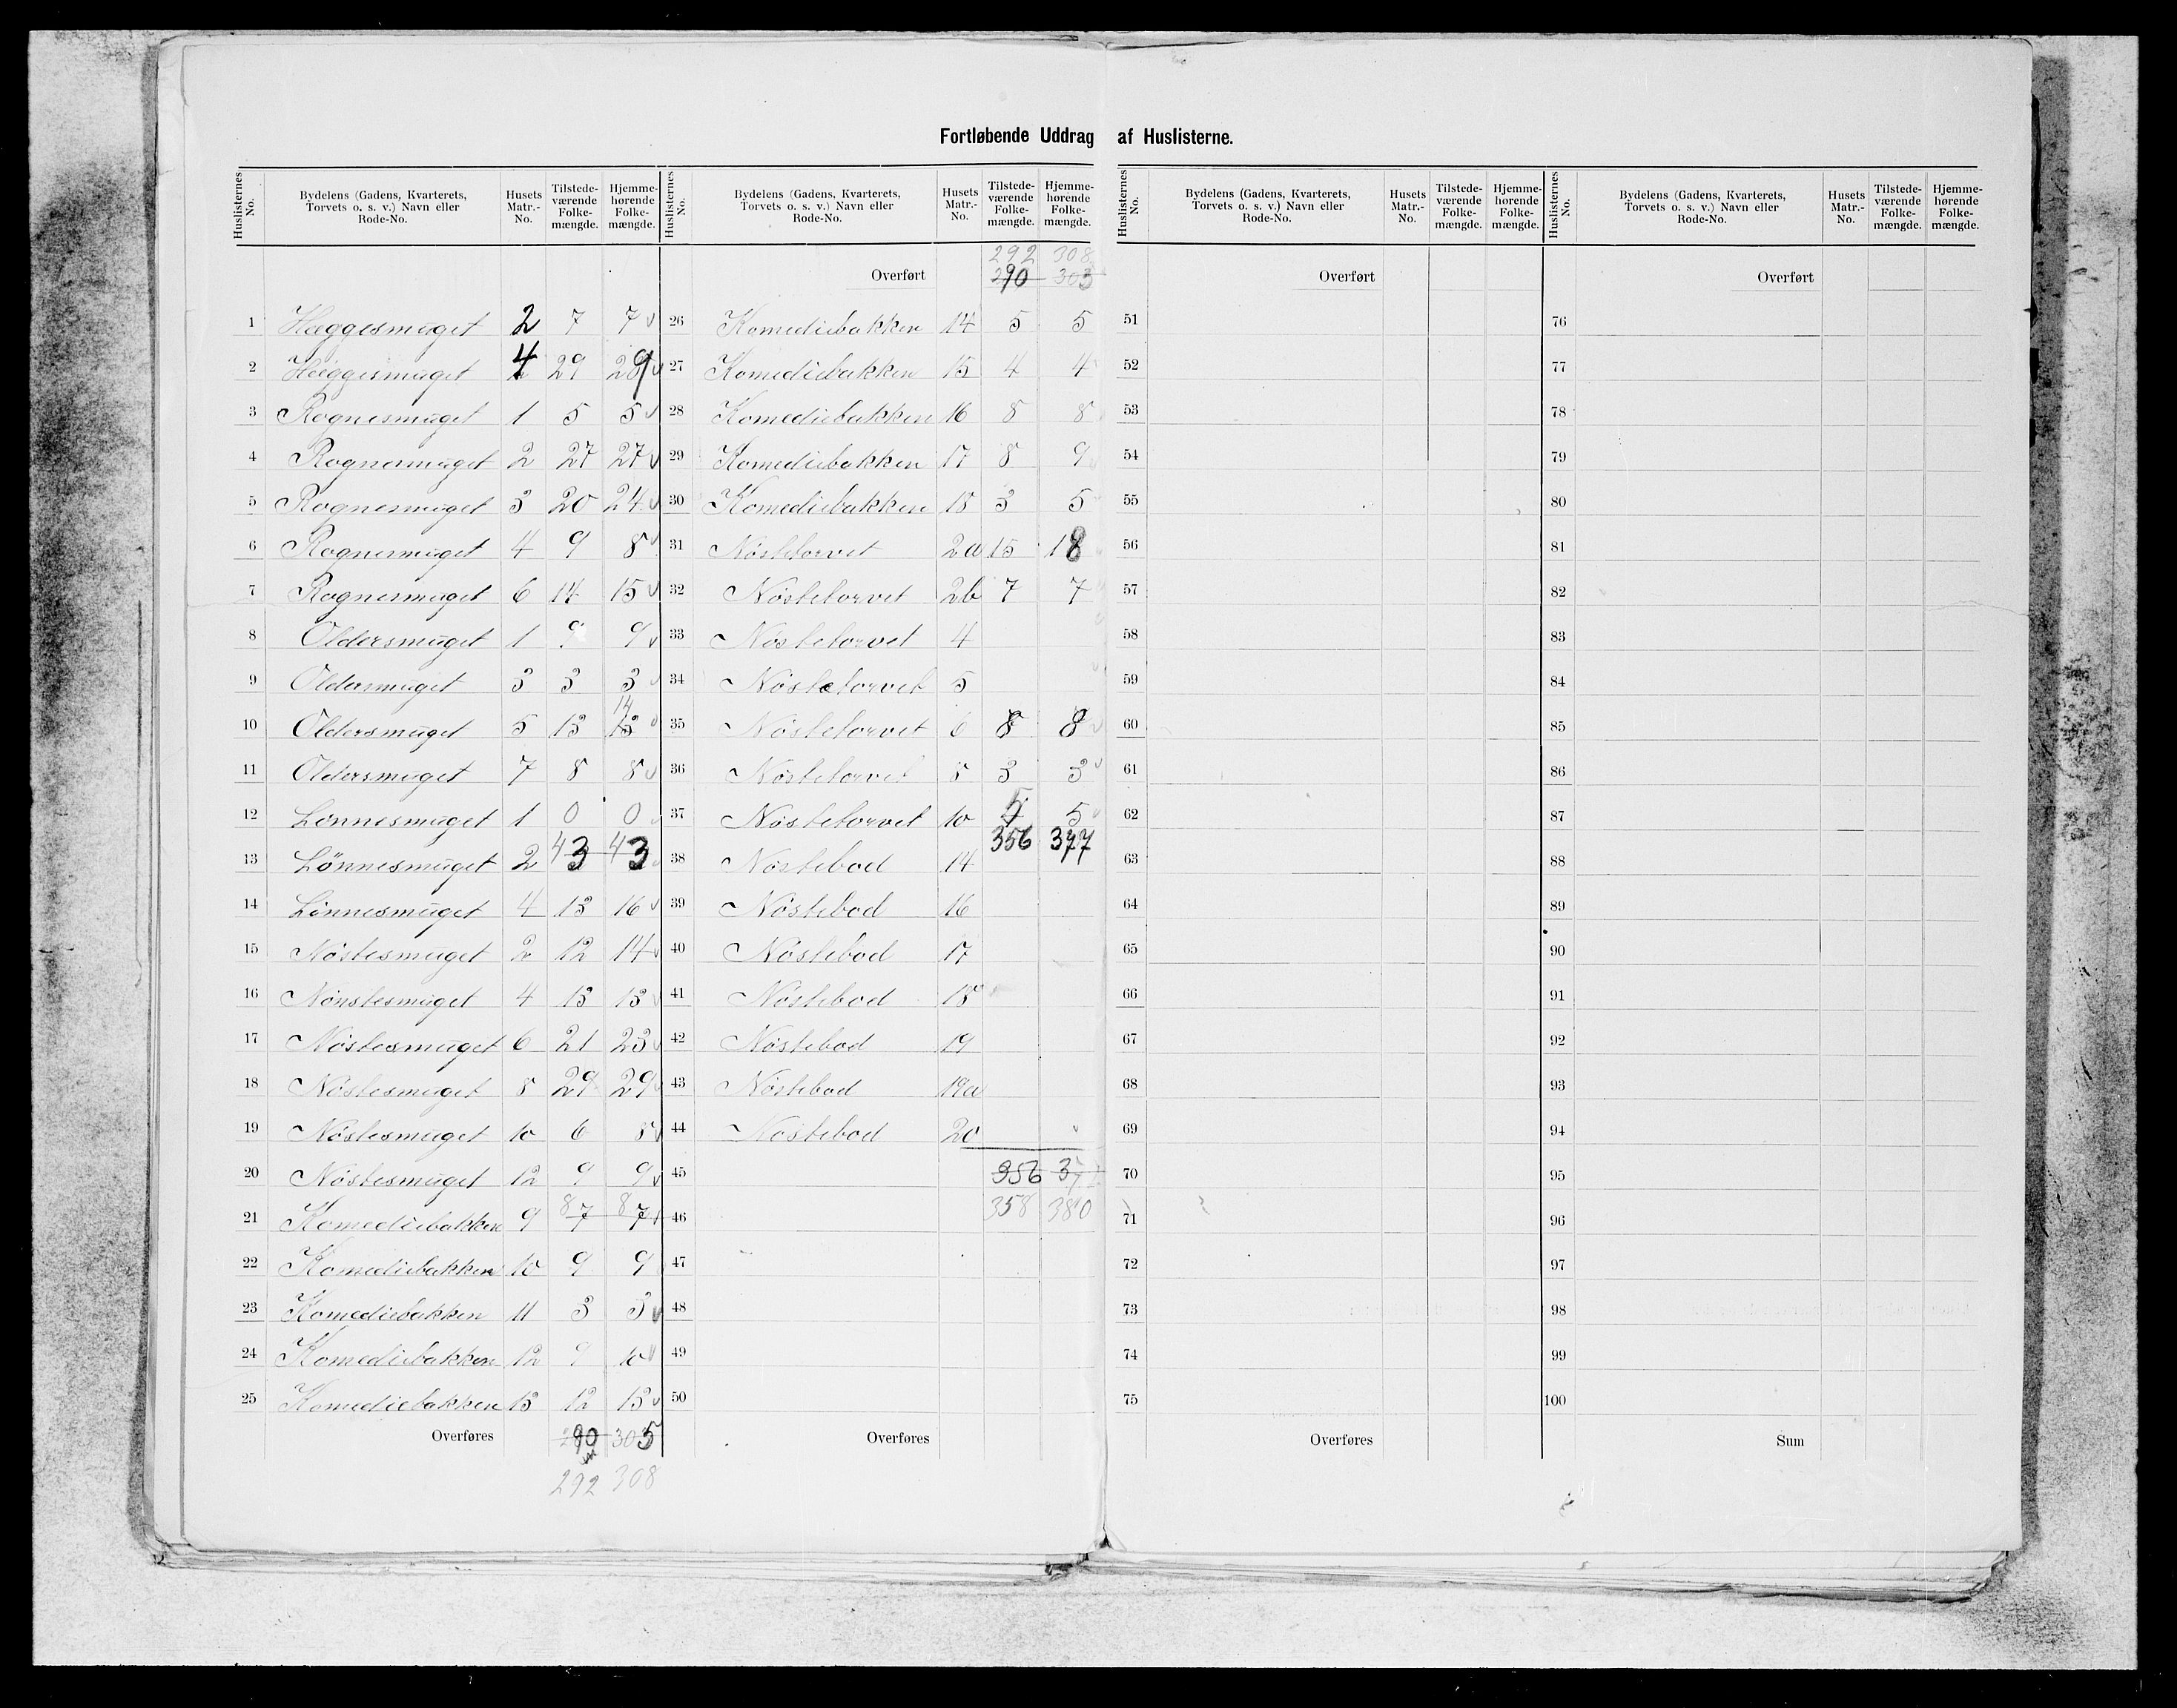 Fortløbende Uddrag af Huslisterne.
Huslisternes No. | Bydelens (Gadens, Kvarterets, Torvets o. s. v.) Navn eller Rode-No. | Husets Matr.-No. | Tilstede-værende Folke-mængde. | Hjemme-hørende Folke-mængde.
1 Hæggesmuget 2 7 7
2 Hæggesmuget 4 29 29
3 Rognesmuget 1 5 5
4 Rognesmuget 2 27 27
5 Rognesmuget 3 20 24
6 Rognesmuget 4 9 8
7 Rognesmuget 6 14 15
8 Oldersmuget 1 9 9
9 Oldersmuget 3 3 3
10 Oldersmuget 5 13 13 14
11 Oldersmuget 7 8 8
12 Lønnesmuget 1 0 0
13 Lønnesmuget 2 4 3 4 3
14 Lønnesmuget 4 13 16
15 Nøstesmuget 2 12 14
16 Nønstesmuget 4 13 13
17 Nøstesmuget 6 21 23
18 Nøstesmuget 8 29 29
19 Nøstesmuget 10 6 8
20 Nøstesmuget 12 9 9
21 Komediebakken 9 8 7 8 7
22 Komediebakken 10 9 9
23 Komediebakken 11 3 3
24 Komediebakken 12 9 10
25 Komediebakken 13 12 13
Overføres 290 305
292 308
Huslisternes No. | Bydelens (Gadens, Kvarterets, Torvets o. s. v.) Navn eller Rode-No. | Husets Matr.-No. | Tilstede-værende Folke-mængde. | Hjemme-hørende Folke-mængde.
292 308
Overført 290 303
26 Komediebakken 14 5 5
27 Komediebakken 15 4 4
28 Komediebakken 16 8 8
29 Komediebakken 17 8 9
30 Komediebakken 18 3 5
31 Nøstetorvet 2a 15 18
32 Nøstetorvet 2b 7 7
33 Nøstetorvet 4
34 Nøstetorvet 5
35 Nøstetorvet 6 8 8
36 Nøstetorvet 8 3 3
37 Nøstetorvet 10 5 5
356 377
38 Nøstebod 14
39 Nøstebod 16
40 Nøstebod 17
41 Nøstebod 18
42 Nøstebod 19
43 Nøstebod 19a
44 Nøstebod 20
45 356
46 358 380
47
48
49
50
Overføres
Huslisternes No. | Bydelens (Gadens, Kvarterets, Torvets o. s. v.) Navn eller Rode-No. | Husets Matr.-No. | Tilstede-værende Folke-mængde. | Hjemme-hørende Folke-mængde.
Overført
51
52
53
54
55
56
57
58
59
60
61
62
63
64
65
66
67
68
69
70
71
72
73
74
75
Overføres
Huslisternes No. | Bydelens (Gadens, Kvarterets, Torvets o. s. v.) Navn eller Rode-No. | Husets Matr.-No. | Tilstede-værende Folke-mængde. | Hjemme-hørende Folke-mængde.
Overført
76
77
78
79
80
81
82
83
84
85
86
87
88
89
90
91
92
93
94
95
96
97
98
99
100
Sum